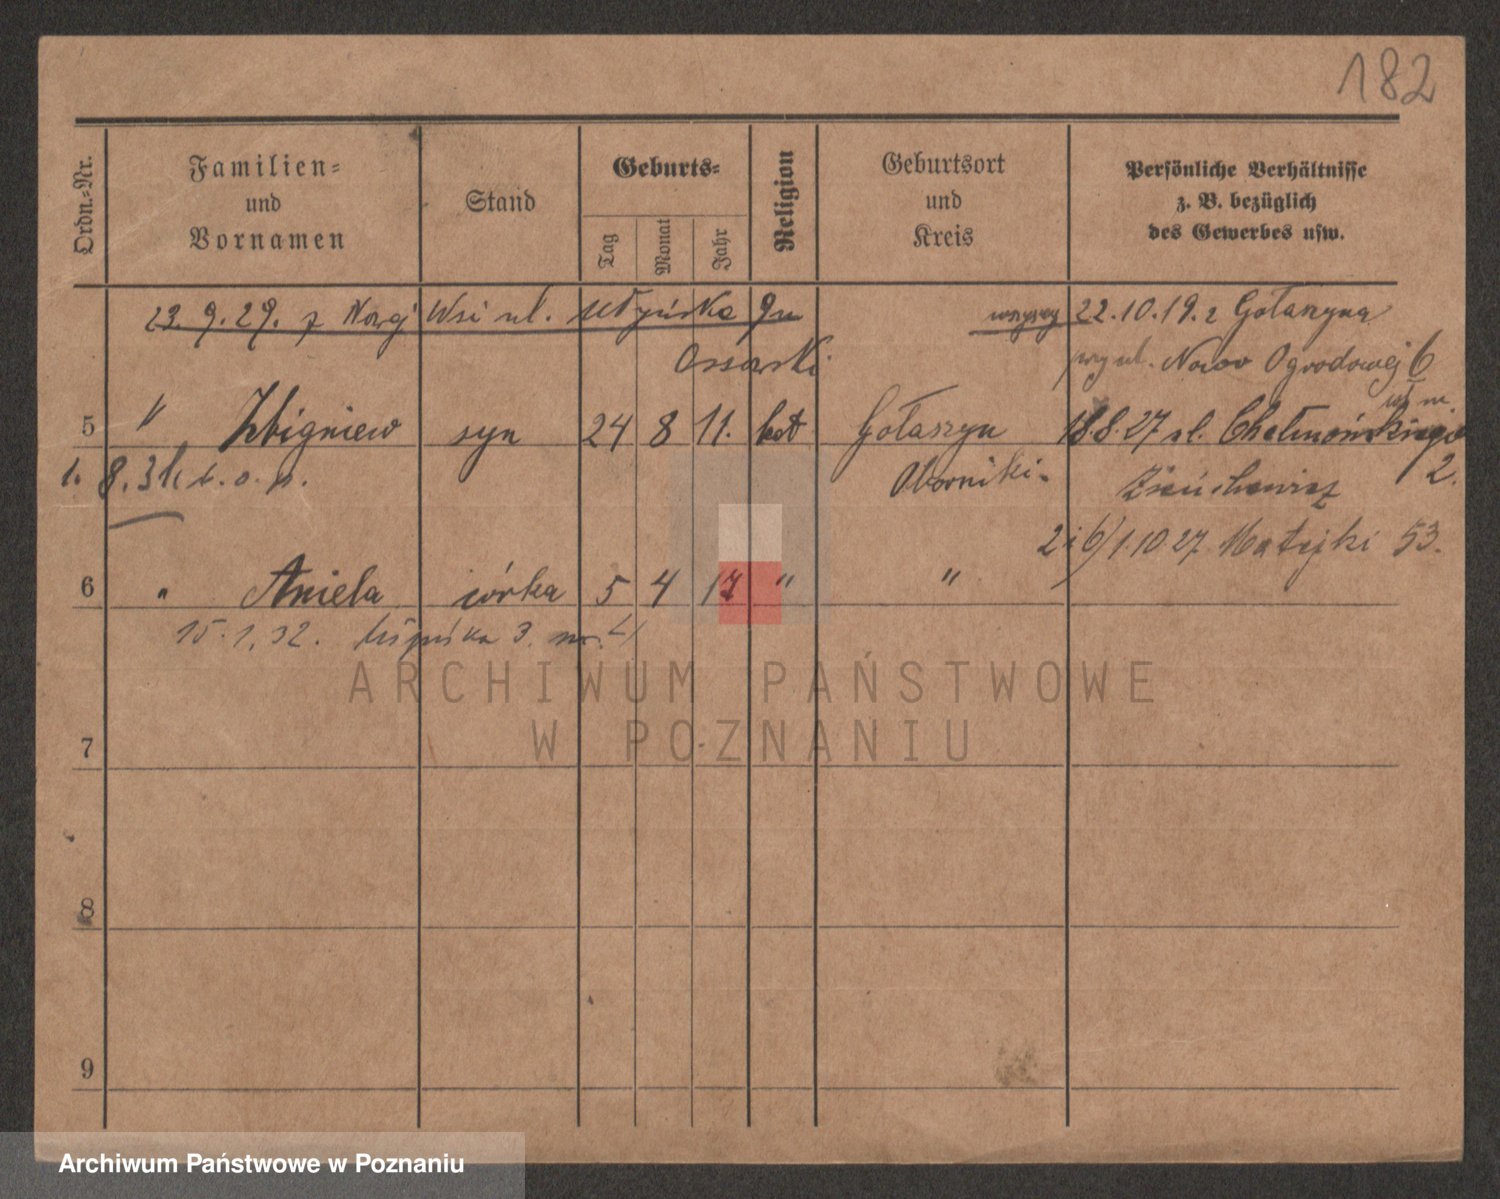 182
Ordn.-Nr.
Familien- und Vornamen
Stand
Geburts-
Tag
Monat
Jahr
Religion
Geburtsort und Kreis
Persönliche Verhältnisse z. B. bezüglich des Gewerbes usw.
23. 9. 29. z Nowej Wsi ul. 9m
22.10.19. z Gołaszyna
przy ul. Nowo Ogrodowej 6
5 " Zbigniew syn 24 8 11. kat Gołaszyn 18.8.27 ul. Chełmońskiego 2.
1. 8. 31 b. o. p.
Oborniki.
1.10.27 Matejki 53.
6 " Aniela córka 5 4 17 " "
15. 1. 32. 3. m.
7
8
9
ARCHIWUM PAŃSTWOWE
W POZNANIU
Archiwum Państwowe w Poznaniu